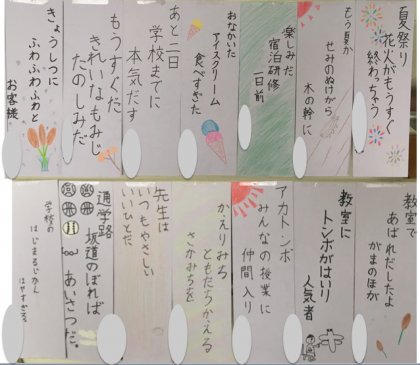 夏祭り
花火がもうすぐ
終わっちゃう
もう夏か
せみのぬけがら
木の幹に
楽しみだ
宿泊研修
一日前
おなかいた
アイスクリーム
食べすぎた
あと二日
学校までに
本気だす
もうすぐだ
きれいなもみじ
たのしみだ
きょうしつに
ふわふわふわと
お客様
教室で
あばれだしたよ
がまのほが
教室に
トンボがはいり
人気者
アカトンボ
みんなの授業に
仲間入り
かえりみち
ともだちかえる
さかみちを
先生は
いつもやさしい
いいひとだ
通学路
坂道のぼれば
あいさつだ
学校の
はじまるじかん
はやすぎる